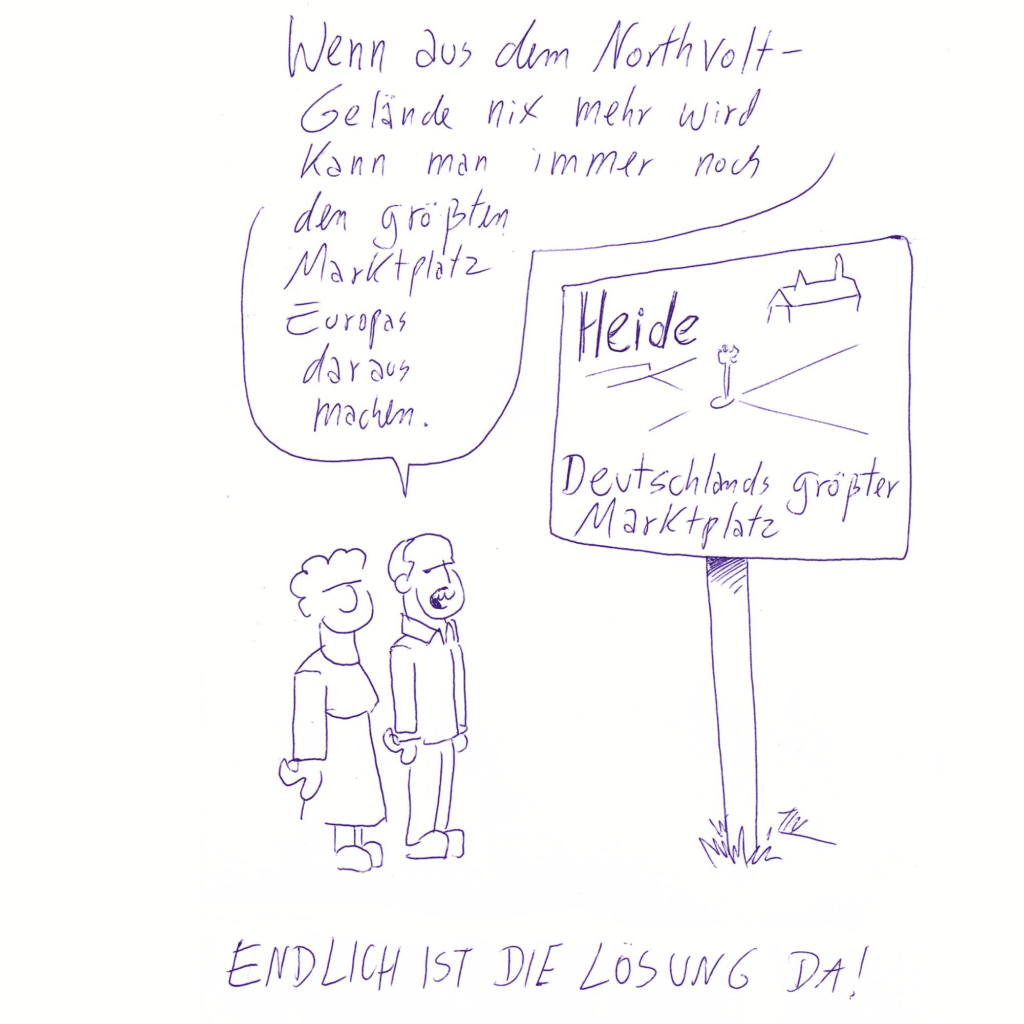 Wenn aus dem Northvolt-
Gelände nix mehr wird
Kann man immer noch
den größten
Marktplatz
Europas
daraus
machen.
Heide
Deutschlands größter
Marktplatz
ENDLICH IST DIE LÖSUNG DA!